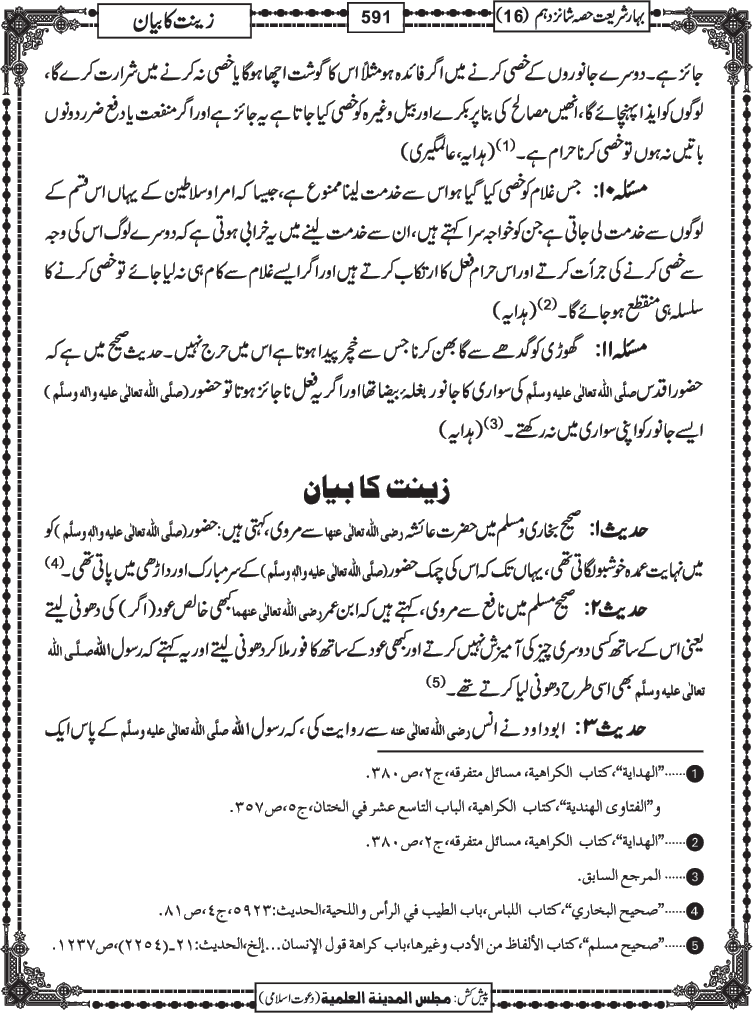 بہار شریعت حصہ شانزدہم (16)
591
زینت کا بیان
جائز ہے۔ دوسرے جانوروں کے خصی کرنے میں اگر فائدہ ہو مثلاً اس کا گوشت اچھا ہوگا یا خصی نہ کرنے میں شرارت کرے گا،
لوگوں کو ایذا پہنچائے گا، انھیں مصالح کی بنا پر بکرے اور بیل وغیرہ کو خصی کیا جاتا ہے یہ جائز ہے اور اگر منفعت یا دفع ضرر دونوں
باتیں نہ ہوں تو خصی کرنا حرام ہے۔(1) (ہدایہ، عالمگیری)
مسئلہ ۱۰: جس غلام کو خصی کیا گیا ہو اس سے خدمت لینا ممنوع ہے، جیسا کہ امرا و سلاطین کے یہاں اس قسم کے
لوگوں سے خدمت لی جاتی ہے جن کو خواجہ سرا کہتے ہیں، ان سے خدمت لینے میں یہ خرابی ہوتی ہے کہ دوسرے لوگ اس کی وجہ
سے خصی کرنے کی جرأت کرتے اور اس حرام فعل کا ارتکاب کرتے ہیں اور اگر ایسے غلام سے کام ہی نہ لیا جائے تو خصی کرنے کا
سلسلہ ہی منقطع ہو جائے گا۔(2) (ہدایہ)
مسئلہ ۱۱: گھوڑی کو گدھے سے گابھن کرنا جس سے خچر پیدا ہوتا ہے اس میں حرج نہیں۔ حدیث صحیح میں ہے کہ
حضور اقدس صلَّی اللہ تعالٰی علیہ وسلَّم کی سواری کا جانور بغلۂ بیضا تھا اور اگر یہ فعل ناجائز ہوتا تو حضور (صلَّی اللہ تعالٰی علیہ واٰلہ وسلَّم)
ایسے جانور کو اپنی سواری میں نہ رکھتے۔(3) (ہدایہ)
زینت کا بیان
حدیث ۱: صحیح بخاری و مسلم میں حضرت عائشہ رضی اللہ تعالٰی عنہا سے مروی، کہتی ہیں: حضور (صلَّی اللہ تعالٰی علیہ واٰلہٖ وسلَّم) کو
میں نہایت عمدہ خوشبو لگاتی تھی، یہاں تک کہ اس کی چمک حضور (صلَّی اللہ تعالٰی علیہ واٰلہٖ وسلَّم) کے سر مبارک اور داڑھی میں پاتی تھی۔(4)
حدیث ۲: صحیح مسلم میں نافع سے مروی، کہتے ہیں کہ ابن عمر رضی اللہ تعالٰی عنہما کبھی خالص عود (اگر) کی دھونی لیتے
یعنی اس کے ساتھ کسی دوسری چیز کی آمیزش نہیں کرتے اور کبھی عود کے ساتھ کافور ملا کر دھونی لیتے اور یہ کہتے کہ رسول اللہ صلَّی اللہ
تعالٰی علیہ وسلَّم بھی اسی طرح دھونی لیا کرتے تھے۔(5)
حدیث ۳: ابو داود نے انس رضی اللہ تعالٰی عنہ سے روایت کی، کہ رسول اللہ صلَّی اللہ تعالٰی علیہ وسلَّم کے پاس ایک
1 ......”الھدایة“، کتاب الکراھیة، مسائل متفرقه، ج۲، ص۳۸۰.
و”الفتاوی الھندیة“، کتاب الکراھیة، الباب التاسع عشر في الختان، ج۵، ص۳۵۷.
2 ......”الھدایة“، کتاب الکراھیة، مسائل متفرقه، ج۲، ص۳۸۰.
3 ...... المرجع السابق.
4 ......”صحیح البخاري“، کتاب اللباس، باب الطیب في الرأس واللحیة، الحدیث: ۵۹۲۳، ج٤، ص۸۱.
5 ......”صحیح مسلم“، کتاب الألفاظ من الأدب وغیرھا، باب کراھة قول الإنسان... إلخ، الحدیث: ۲۱۔(۲۲۵٤)، ص۱۲۳۷.
پیش کش: مجلس المدینة العلمیة (دعوت اسلامی)